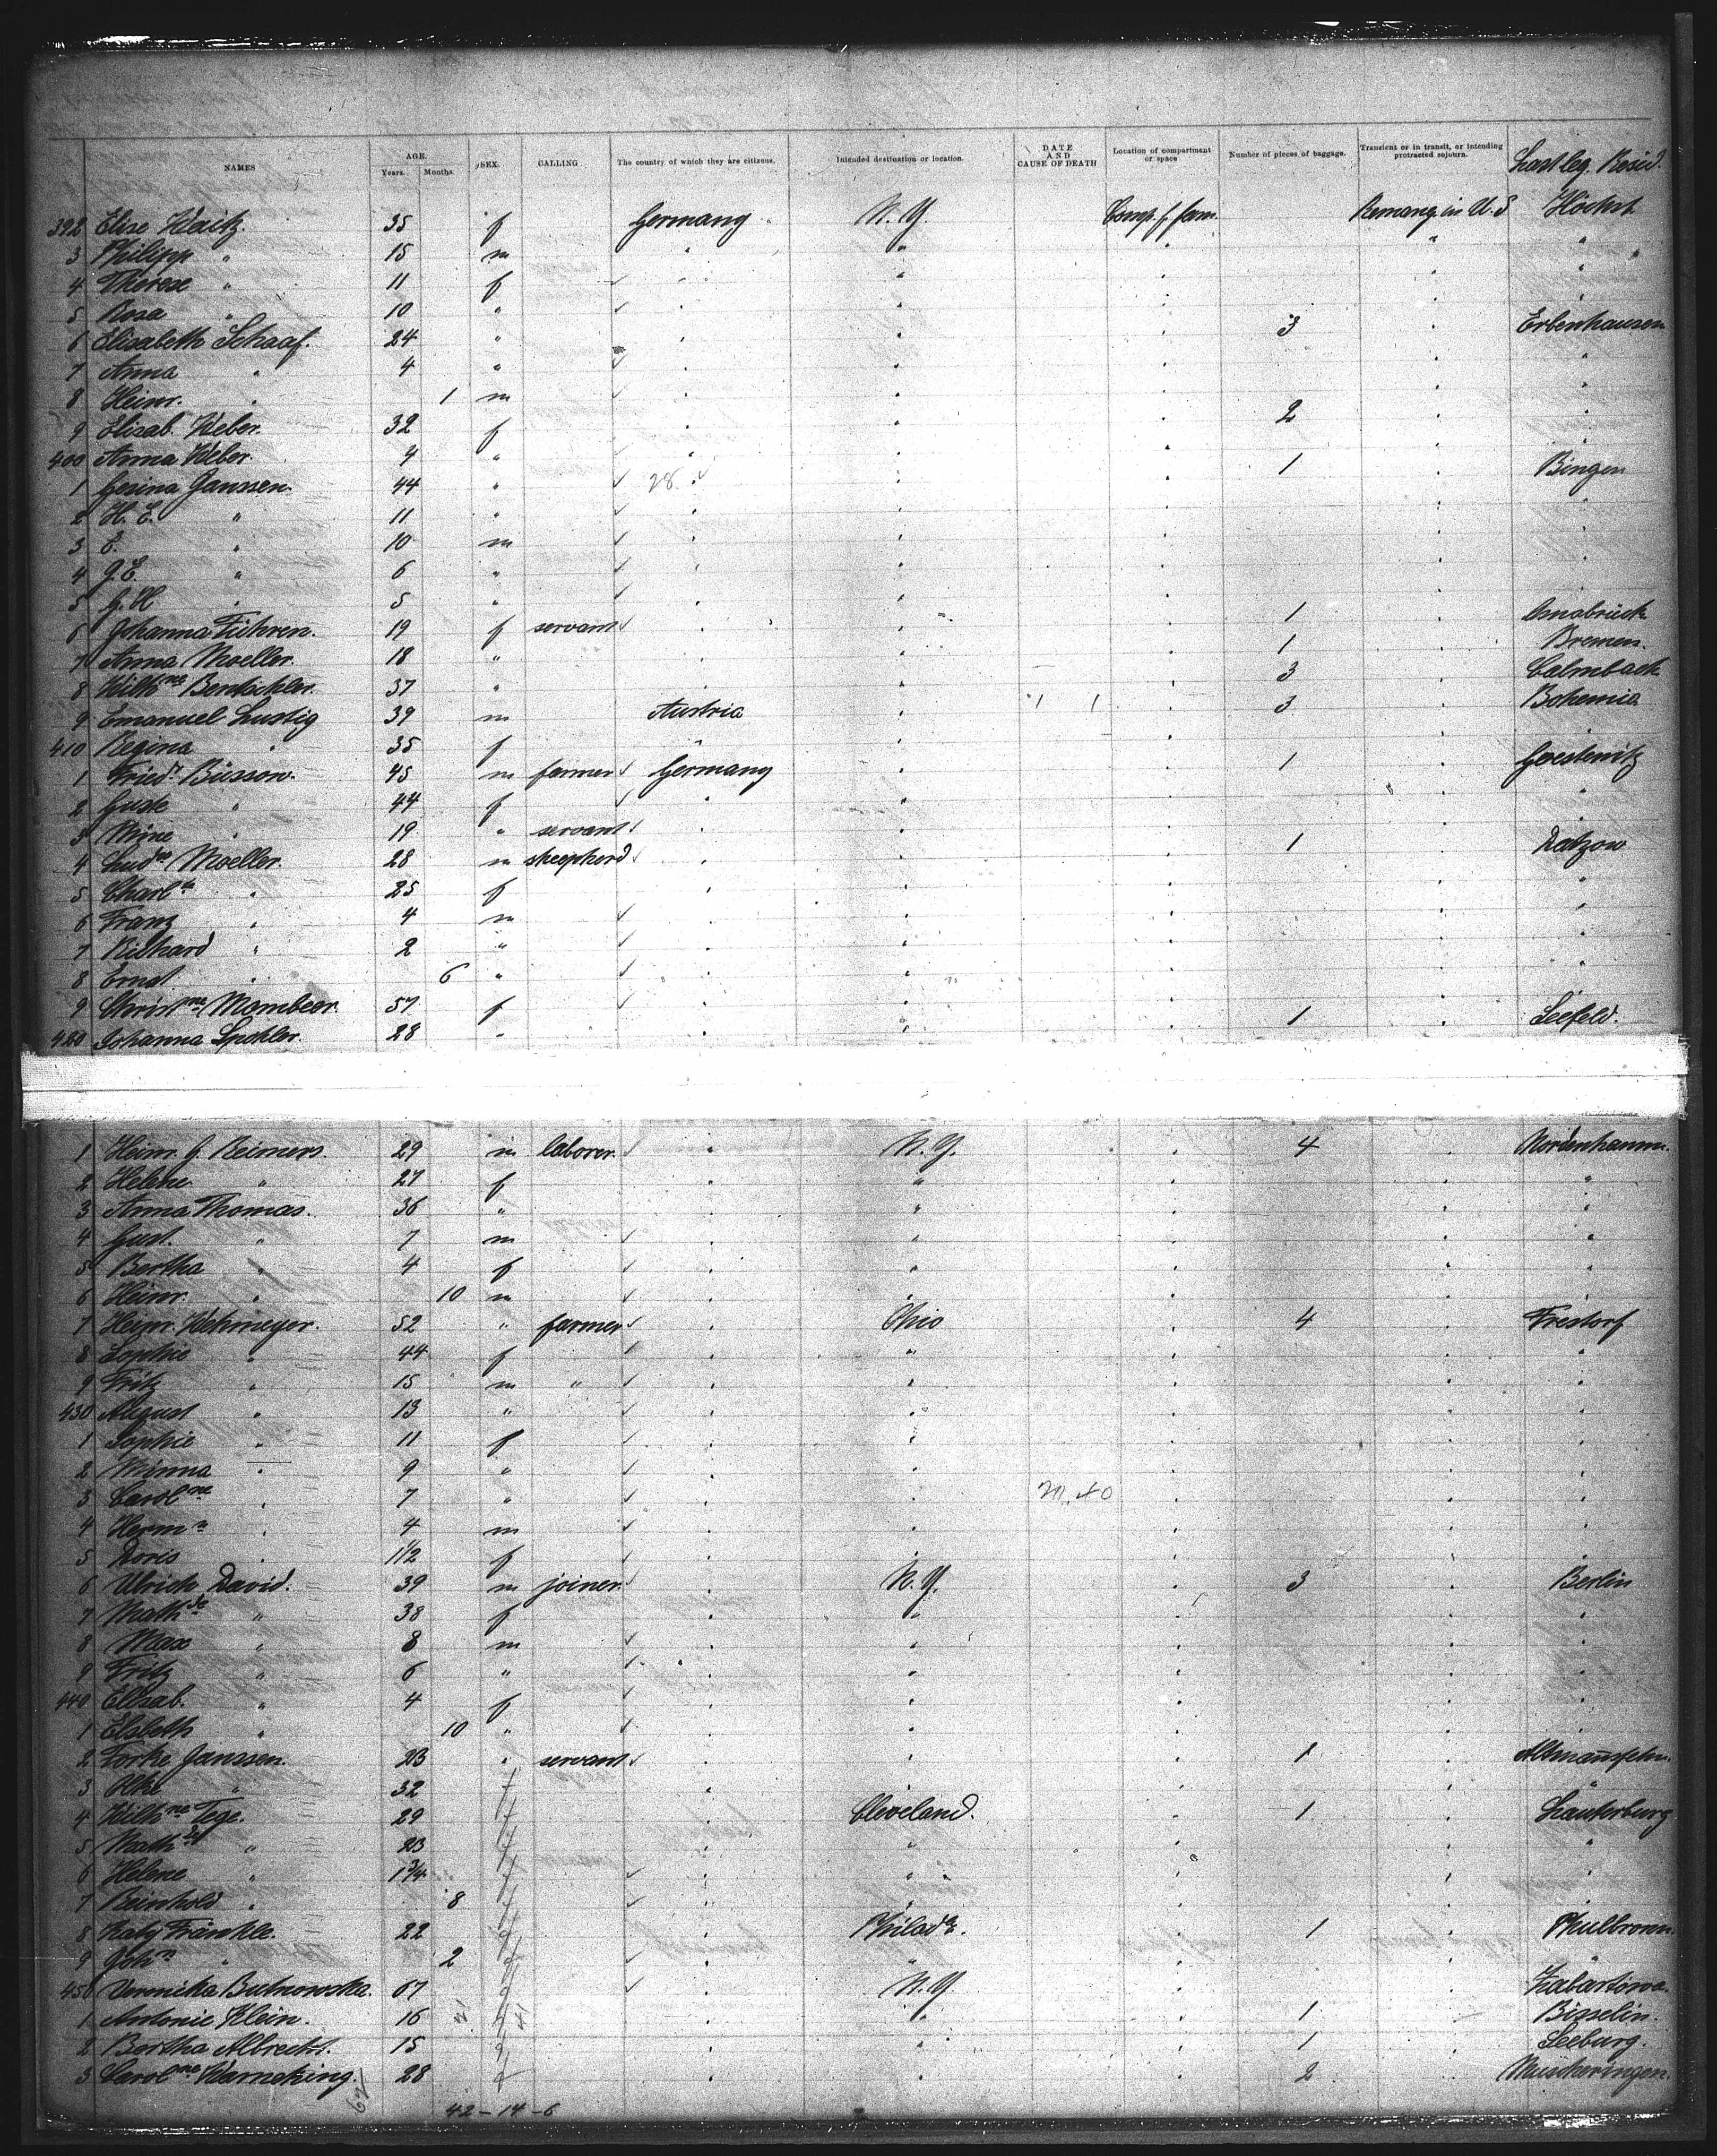 NAMES AGE. Years. Months. SEX. CALLING The country of which they are citizens. Intended destination or location. DATE AND CAUSE OF DEATH Location of compartment or space Number of pieces of baggage. Transient or in transit, or intending protracted sojourn. Last leg. Resid.
392 Elise Waitz. 35 f Germany N. Y. Comp. f fam. Remang. in U. S Höchst
3 Philipp " 15 m " " " " "
4 Therese " 11 f " " " " "
5 Rosa " 10 " " " " " "
6 Elisabeth Schaaf. 24 " " " " 3 " Erbenhausen
7 Anna " 4 " " " " " "
8 Heinr. " 1 m " " " " "
9 Elisab. Weber. 32 f " " " 2 " "
400 Anna Weber. 4 " " " " "
1 Gesina Janssen. 44 " 28. " " " 1 " Bingen
2 H. E. " 11 " " " " " "
3 E. " 10 m " " " " "
4 J. E. " 6 " " " " " "
5 G. H " 5 " " " " " "
6 Johanna Führen. 19 f servant " " " 1 " Osnabrück
7 Anna Moeller. 18 " " " " 1 " Bremen.
8 Wilhne Bentschler. 37 " " " " 3 " Calmbach
9 Emanuel Lustig 39 m Austria " " 3 " Bohemia
410 Regina " 35 f " " " "
1 Friedr. Büssow. 45 m farmer Germany " " 1 " Goestenitz
2 Guste " 44 f " " " " "
3 Mine " 19 " servant " " " " "
4 Moeller. 28 m sheepherd " " " 1 " Datzow
5 Charlte " 25 f " " " " "
6 Franz " 4 m " " " " "
7 Richard " 2 " " " " " "
8 Ernst " 6 " " " " " "
9 Christne Mambeer. 57 f " " " 1 " Seefeld.
420 Johanna 28 " " " " "
1 Heinr. G. Reimers. 29 m laborer. " N. Y. " 4 " Nordenhamm.
2 Helene " 27 f " " " " "
3 Anna Thomas. 36 " " " " " "
4 Gust. " 7 m " " " " "
5 Bertha " 4 f " " " " "
6 Heinr. " 10 m " " " " "
7 Heinr. Wehmeyer. 52 " farmer " Ohio " 4 " Frestorf
8 Sophie " 44 f " " " " "
9 Fritz " 15 m " " " " " "
430 August " 13 " " " " " "
1 Sophie " 11 f " " " " "
2 Minna " 9 " " " " " "
3 Carolne " 7 " " " " " "
4 Hermn " 4 m " " " " "
5 Doris " 1 1/2 f " " " " "
6 Ulrich David. 39 m joiner. " N. Y. " 3 " Berlin
7 Mathde " 38 f " " " " "
8 Max " 8 m " " " " "
9 Fritz " 6 " " " " " "
440 Elisab. " 4 f " " " " "
1 Elsbeth " 10 " " " " " "
2 Forke Janssen. 23 " servant " " " 1 " Altmannsfehn.
3 Olke " 32 f " " " " "
4 Wilhne Tege. 29 f " Cleveland. " 1 " Lauterburg
5 Mathde " 23 f " " " " "
6 Helene " 1 3/4 f " " " " "
7 Reinhold " 8 f " " " " "
8 Katy Fränkle. 22 f " Philada. " 1 " Mulbronn.
9 John " 2 f " " " " "
450 Veronika Butnowska. 67 f " N. Y. " " Zabartowa.
1 Antonie Klein. 16 f " " " 1 " Bisselin.
2 Bertha Albrecht. 15 f " " " 1 " Seeburg.
3 Carolne Warneking. 28 f " " " 2 " Muscheringen.
42 - 14 - 6